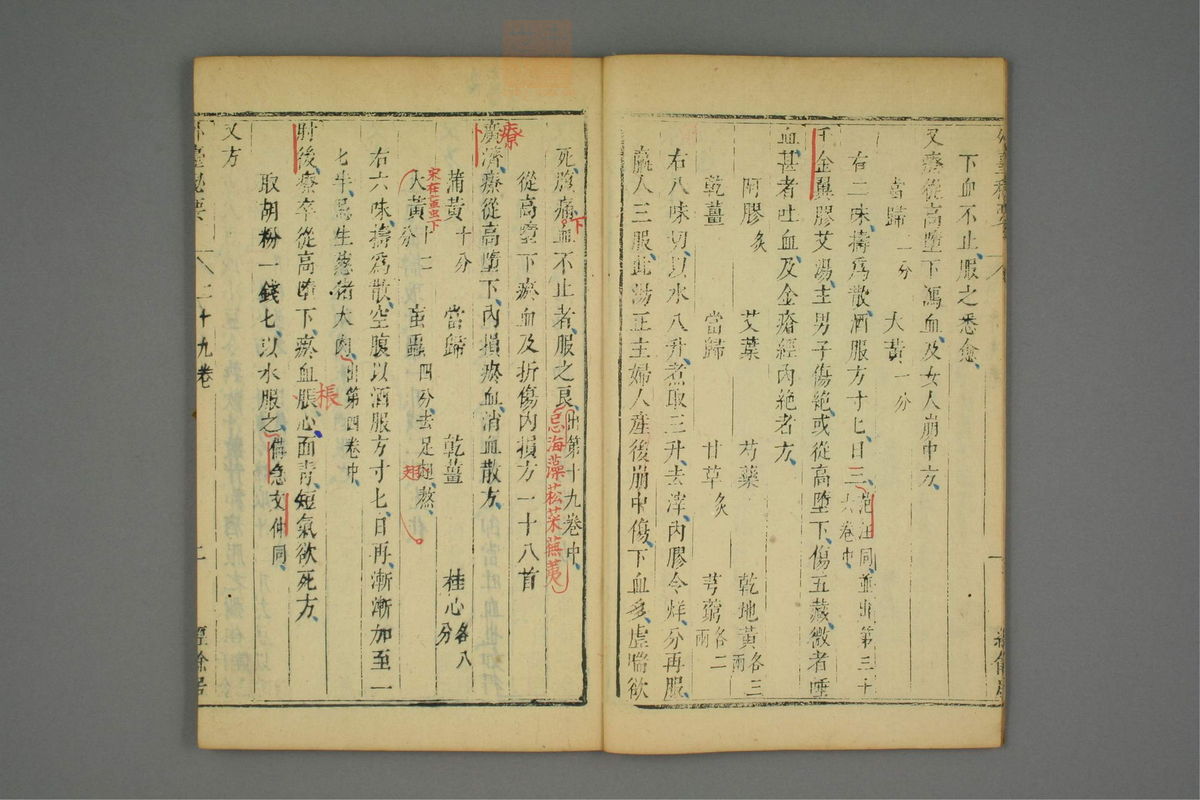 下血不止、服之悉愈、
又療從高墮下瀉血、及女人崩中方、
當歸二分 大黃一分
右二味、擣為散、酒服方寸匕、日三、范汪同、並出第三十六卷中、
千金翼膠艾湯、主男子傷絶、或從高墮下、傷五藏、微者唾
血、甚者吐血、及金瘡經內絶者方、
阿膠炙 艾葉 芍藥 乾地黃各三兩
乾薑 當歸 甘草炙 芎藭各二兩
右八味切、以水八升、煮取三升、去滓、內膠令烊、分再服、
羸人三服、此湯正主婦人產後崩中傷、下血多、虛喘欲
死、腹痛、血不止者、服之良、出第十九卷中、
下
忌海藻菘菜蕪荑
從高墮下瘀血及折傷內損方一十八首
廣濟、療從高墮下、內損瘀血、消血散方、
療
蒲黃十分 當歸 乾薑 桂心各八分
大黃十二分 䖟蟲四分、去足翅、熬、
宋在䖟虫下
翅
右六味、擣為散、空腹以酒服方寸匕、日再、漸漸加至一
匕半、忌生葱猪犬肉、出第四卷中、
肘後、療卒從高墮下、瘀血脹心、面青、短氣欲死方、
棖
取胡粉一錢匕、以水服之、備急文仲同、
又方
外臺秘要 二十九卷 二 經餘居